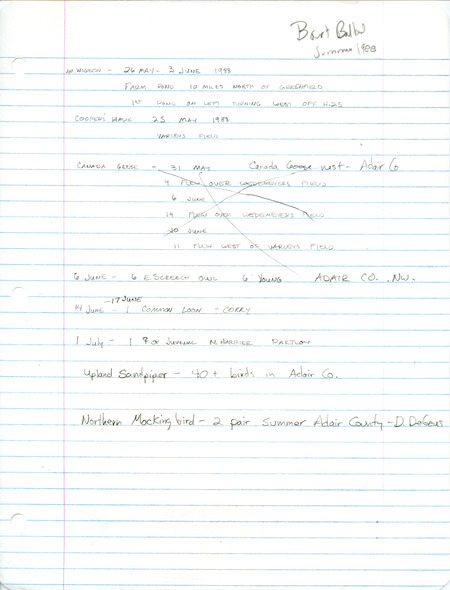 Summer 1988
AM WIGEON - 26 MAY - 3 JUNE 1988
FARM POND 10 MILES NORTH OF GREENFIELD
1ST POND ON LEFT TURNING WEST OFF H-25
COOPERS HAWK 25 MAY 1988
VARLEYS FIELD
CANADA GEESE - 31 MAY Canada Goose nest - Adair Co
4 FLEW OVER WEDEMEIERS FIELD
6 JUNE
14 FLEW OVER WEDEMEIERS FIELD
20 JUNE
11 FLEW WEST OF VARLEYS FIELD
6 JUNE - 6 E. SCREECH OWL 6 YOUNG ADAIR CO. NW.
-17 JUNE
14 JUNE - 1 COMMON LOON - CORRY
1 July - 1 ♀ or JUVENAL N. HARRIER PARTLOW
Upland Sandpiper - 40+ birds in Adair Co.
Northern Mockingbird - 2 pair Summer Adair County - D. DeGeus